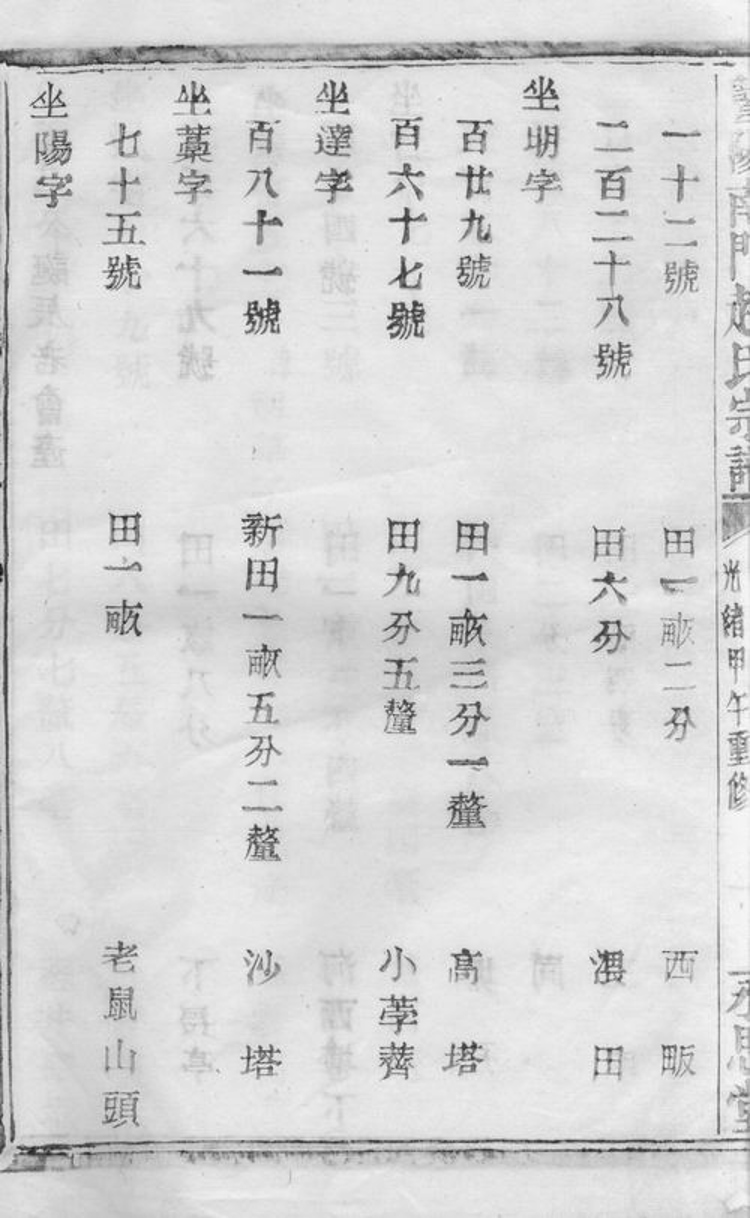 南門趙氏宗譜 光緒甲午重修 永思堂
一十二號 田一畝二分 西畈
二百二十八號 田六分 田
坐明字
百廿九號 田一畝三分一釐 高塔
百六十七號 田九分五釐 小荸薺
坐達字
百八十一號 新田一畝五分二釐 沙塔
坐藁字
七十五號 田一畝 老鼠山頭
坐陽字